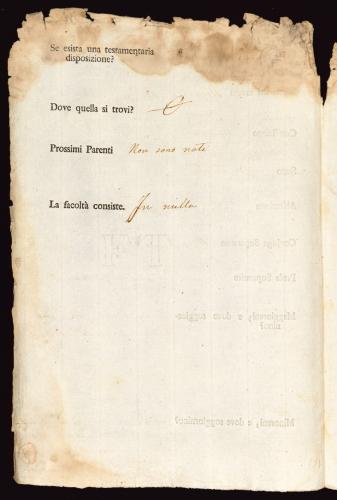 Se esista una testamentaria
disposizione?
Dove quella si trovi?
Prossimi Parenti Non sono noti
La facoltà consiste. In nulla